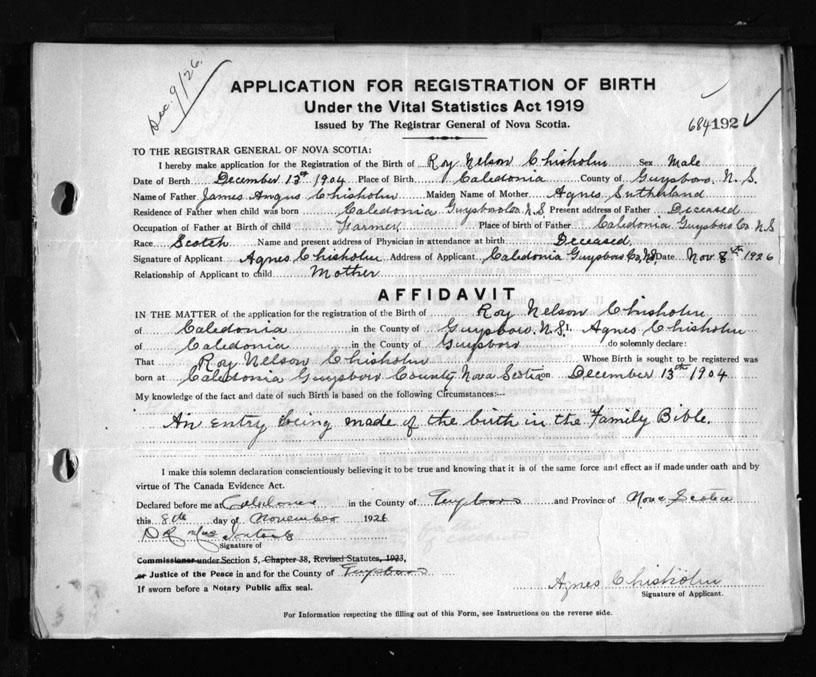 Dec. 9/26.
APPLICATION FOR REGISTRATION OF BIRTH
Under the Vital Statistics Act 1919
Issued by The Registrar General of Nova Scotia.
684 192
TO THE REGISTRAR GENERAL OF NOVA SCOTIA:
I hereby make application for the Registration of the Birth of Roy Nelson Chisholm Sex Male
Date of Birth December 13th 1904 Place of Birth Caledonia County of Guysboro, N.S.
Name of Father James Angus Chisholm Maiden Name of Mother Agnes Sutherland
Residence of Father when child was born Caledonia Guysboro Co. N.S. Present address of Father Deceased
Occupation of Father at Birth of child Farmer Place of birth of Father Caledonia Guysboro Co. N.S
Race Scotch Name and present address of Physician in attendance at birth Deceased
Signature of Applicant Agnes Chisholm Address of Applicant Caledonia Guysboro Co, N.S. Date Nov 8th 1926
Relationship of Applicant to child Mother
AFFIDAVIT
IN THE MATTER of the application for the registration of the Birth of Roy Nelson Chisholm
of Caledonia in the County of Guysboro. N.S. I, Agnes Chisholm
of Caledonia in the County of Guysboro do solemnly declare:
That Roy Nelson Chisholm Whose Birth is sought to be registered was
born at Caledonia Guysboro County Nova Scotia on December 13th 1904
My knowledge of the fact and date of such Birth is based on the following Circumstances:—
An entry being made of the birth in the Family Bible.
I make this solemn declaration conscientiously believing it to be true and knowing that it is of the same force and effect as if made under oath and by
virtue of The Canada Evidence Act.
Declared before me at Caledonia in the County of Guysboro and Province of Nova Scotia
this 8th day of November 1926
Signature of
Commissioner under Section 5, Chapter 38, Revised Statutes, 1923,
or Justice of the Peace in and for the County of Guysboro
If sworn before a Notary Public affix seal.
Agnes Chisholm
Signature of Applicant.
For Information respecting the filling out of this Form, see Instructions on the reverse side.